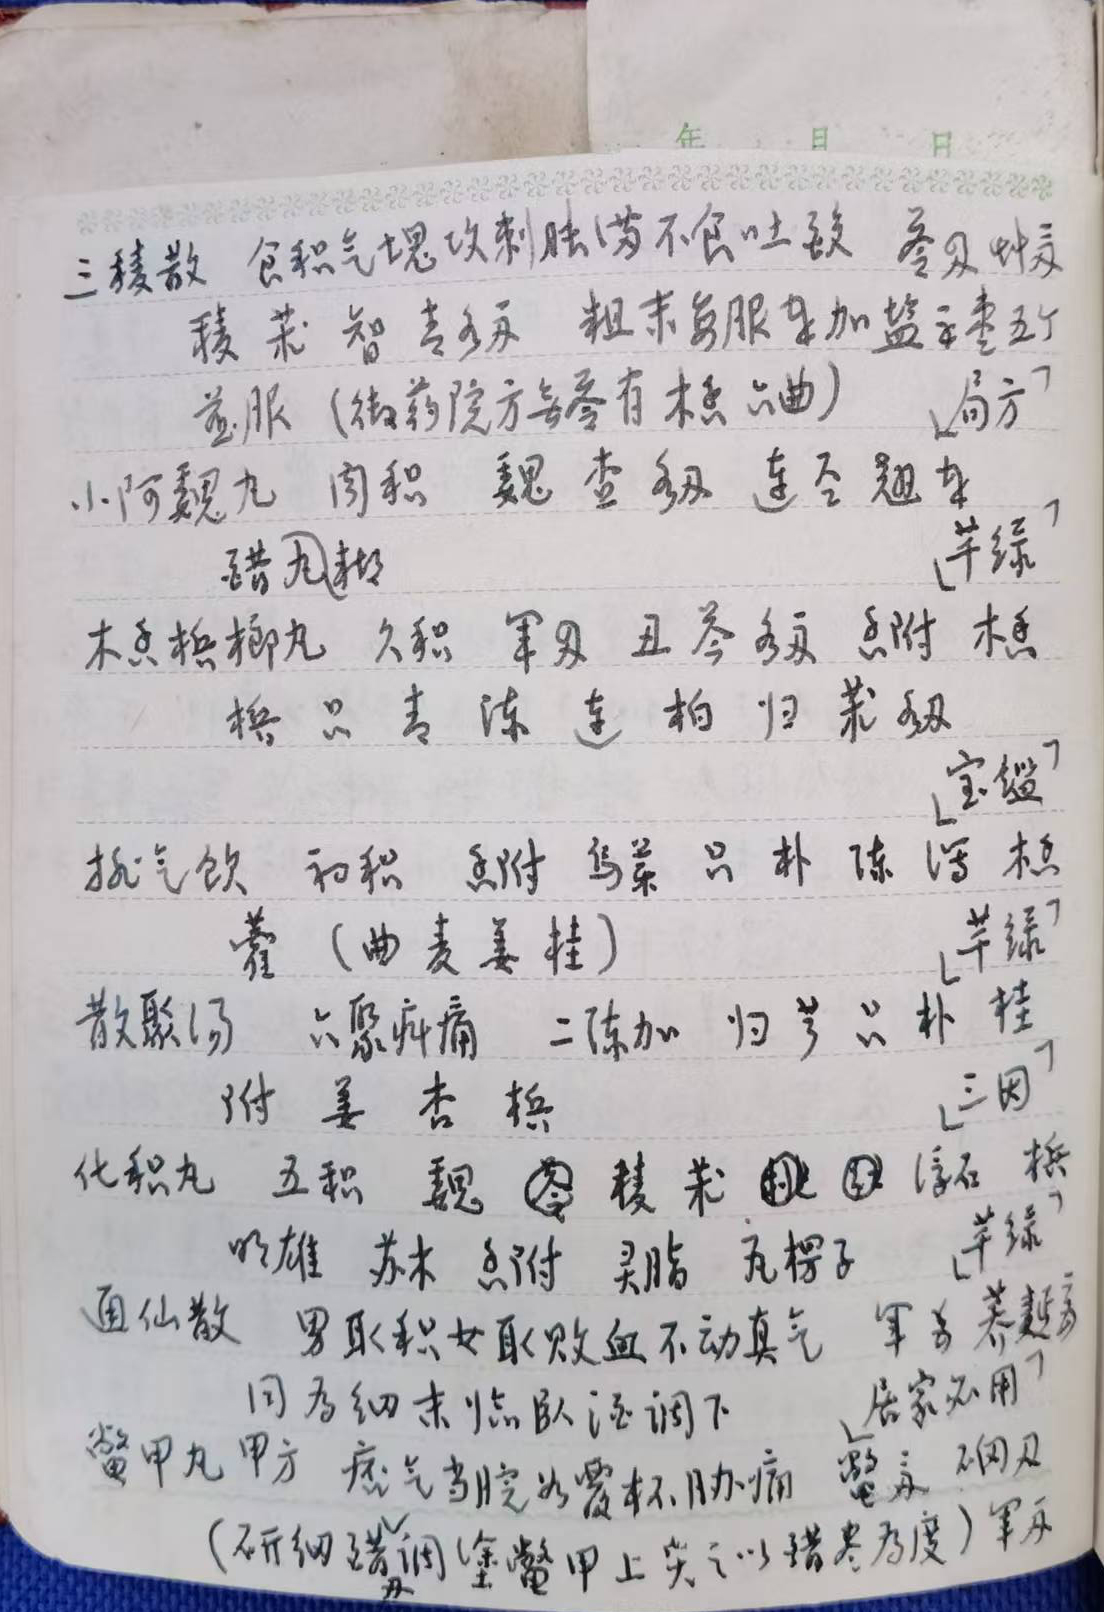 年 月 日
三稜散 食积气块攻刺胀满不食吐 苓
稜 莪 智 青 粗末每服 加盐 枣五个
服 （御药院方无苓有木香六曲） 「局方」
小阿魏丸 肉积 魏 查 连 翘
醋丸糊 「芊绿」
木香槟榔丸 久积 军 丑 芩 香附 木香
槟 只 青 陈 连 柏 归 莪
「宝鉴」
排气饮 初积 香附 乌药 只 朴 陈 泻 木香
藿 （曲麦姜桂） 「芊绿」
散聚汤 六聚疼痛 二陈加 归 芎 只 朴 桂
附 姜 杏 槟 「三因」
化积丸 五积 魏 稜 莪 浮石 槟
明雄 苏木 香附 灵脂 瓦楞子 「芊绿」
通仙散 男取积女取败血不动真气 军 荞麪
同为细末临卧酒调下 「居家必用」
鳖甲丸 甲方 痞气当脘如覆杯肋痛 鳖 硇
（研细醋调涂鳖甲上炙之以醋尽为度）军